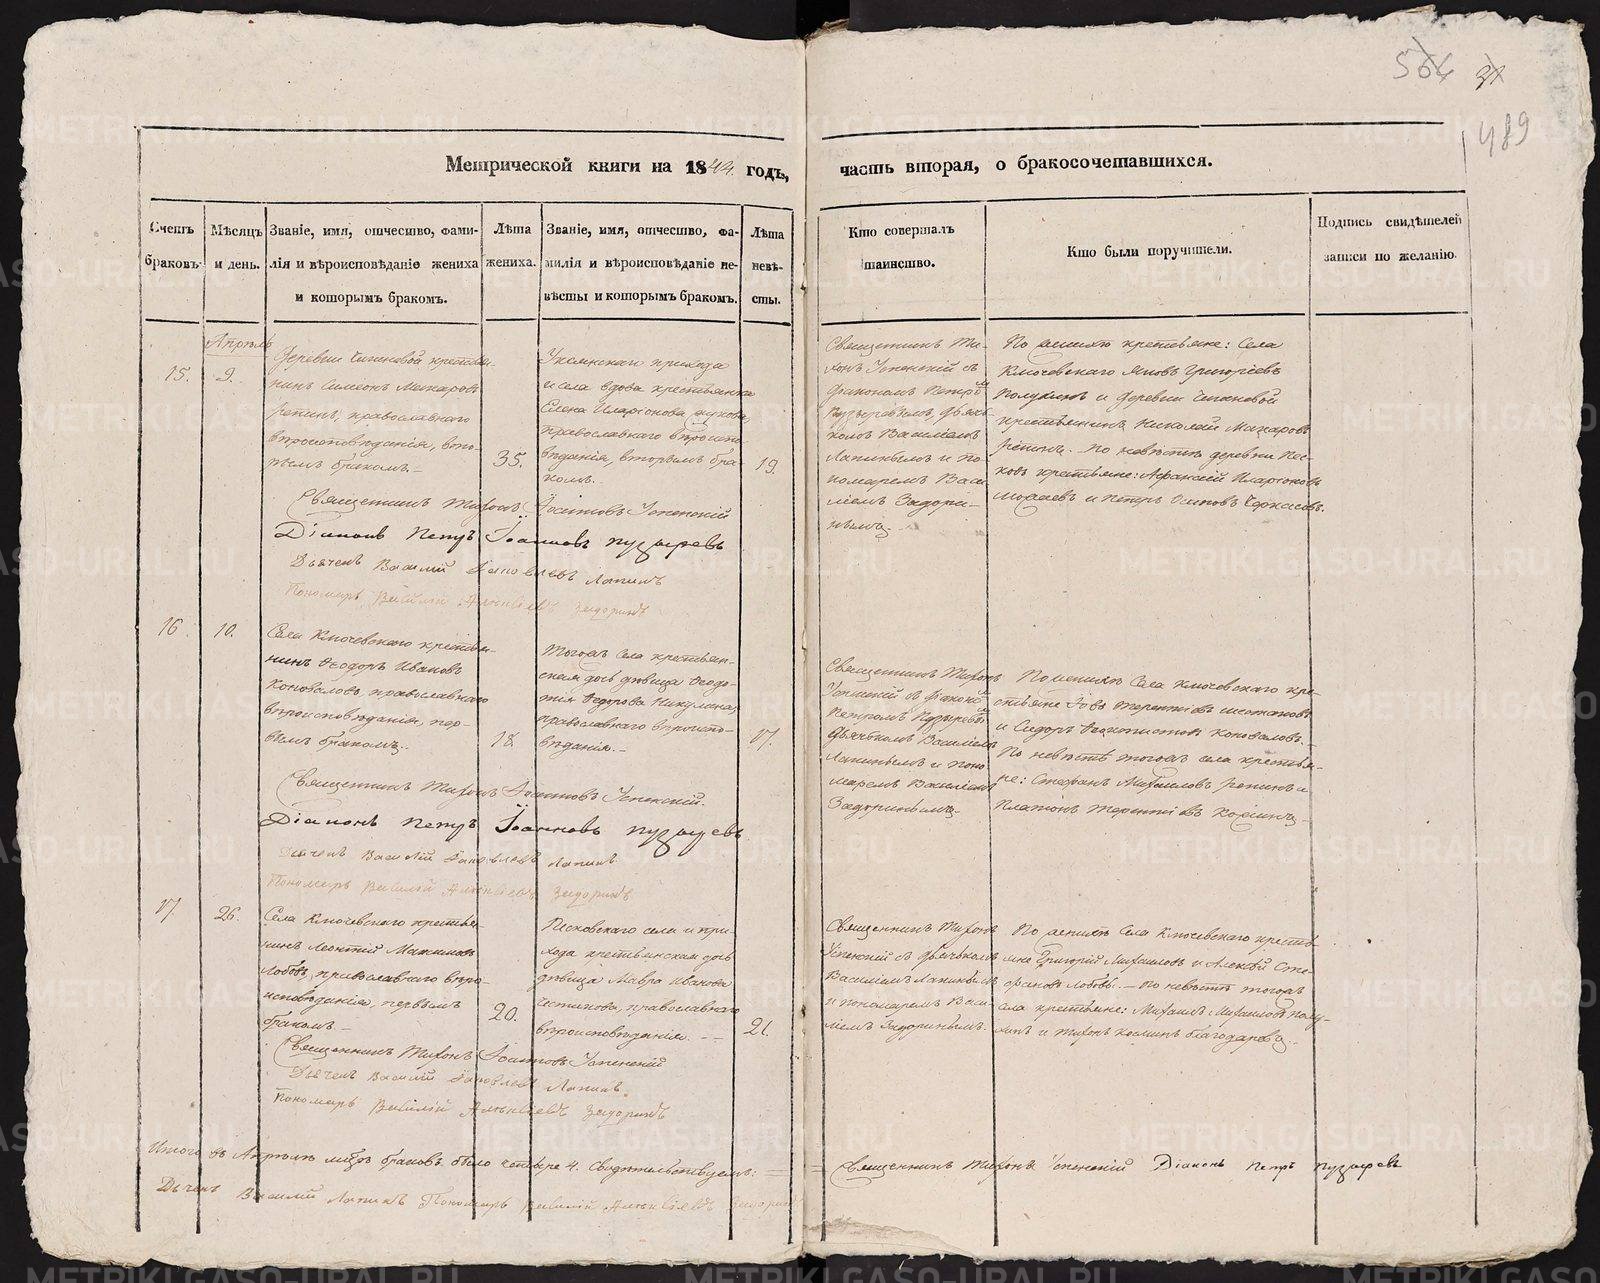 564 31
489
Метрической книги на 1844. годъ, часть вторая, о бракосочетавшихся.
Счетъ браковъ.
Мѣсяцъ и день.
Званіе, имя, отчество, фамилія и вѣроисповѣданіе жениха и которымъ бракомъ.
Лѣта жениха.
Званіе, имя, отчество, фамилія и вѣроисповѣданіе невѣсты и которымъ бракомъ.
Лѣта невѣсты.
Кто совершалъ таинство.
Кто были поручители.
Подпись свидѣтелей записи по желанію.
Апрѣль
15. 9.
Деревни крестья-
нинъ Симеонъ Макаровъ
Репинъ, православнаго
вѣроисповѣданія, вто-
рымъ бракомъ.
35.
прихода
и села вдова крестьянка
Елена Иларіонова
православнаго вѣроиспо-
вѣданія, вторымъ бра-
комъ.
19.
Священникъ Ти-
хонъ Успенскій съ
Діакономъ Петромъ
Пузыревымъ, Дьяч-
комъ Василіемъ
Лапинымъ и По-
номаремъ Васи
ліемъ Задори-
нымъ.
По женихѣ крестьяне: Села
Ключевскаго Яковъ Григорьевъ
Полухинъ и деревни
крестьянинъ Николай Макаровъ
Репинъ. По невѣстѣ деревни
крестьяне: Афанасій Иларіоновъ
и Петръ Осиповъ Черкасовъ.
Священникъ Тихонъ Іоанновъ Успенскій
Діаконъ Петръ Іоанновъ Пузыревъ
Дьячекъ Василій Яковлевъ Лапинъ
Пономарь Василій Алексѣевъ Задоринъ
16. 10.
Села Ключевскаго крестья-
нинъ Ѳеодоръ Ивановъ
Коноваловъ, православнаго
вѣроисповѣданія, пер-
вымъ бракомъ.
18.
Тогожъ села крестьян-
ская дочь дѣвица Ѳеодо-
тія Ѳедорова Никулина,
православнаго вѣроиспо-
вѣданія.
17.
Священникъ Тихонъ
Успенскій съ Діакономъ
Петромъ Пузыревымъ
Дьячкомъ Василіемъ
Лапинымъ и Поно-
маремъ Василіемъ
Задоринымъ.
По женихѣ Села Ключевскаго кре-
стьяне Іовъ Терентіевъ
и Сидоръ Коноваловъ.
По невѣстѣ тогожъ села крестья-
не: Стефанъ Михайловъ Репинъ и
Платонъ Терентіевъ
Священникъ Тихонъ Іоанновъ Успенскій.
Діаконъ Петръ Іоанновъ Пузыревъ
Дьячекъ Василій Яковлевъ Лапинъ
Пономарь Василій Алексѣевъ Задоринъ
17 26.
Села Ключевскаго крестья-
нинъ Леонтій Максимовъ
Лобовъ, православнаго вѣро-
исповѣданія, первымъ
бракомъ.
20.
Песковскаго села и при-
хода крестьянская дочь
дѣвица Мавра Иванова
православнаго
вѣроисповѣданія.
21.
Священникъ Тихонъ
Успенскій съ Дьячкомъ
Василіемъ Лапинымъ
и пономаремъ Васи
ліемъ Задоринымъ.
По женихѣ Села Ключевскаго кресть-
яне Григорій Михайловъ и Алексѣй Сте-
фановъ Лобовы. По невѣстѣ тогожъ
села крестьяне: Михаилъ Михайловъ Полу-
хинъ и Тихонъ Косминъ
Священникъ Тихонъ Іоанновъ Успенскій
Дьячекъ Василій Яковлевъ Лапинъ.
Пономарь Василій Алексѣевъ Задоринъ
Итого въ Апрѣлѣ мѣсяцѣ браковъ было четыре 4. Свидѣтельствуемъ: Священникъ Тихонъ Успенскій Діаконъ Петръ Пузыревъ
Дьячекъ Василій Лапинъ Пономарь Василій Алексѣевъ Задоринъ
METRIKI.GASO-URAL.RU